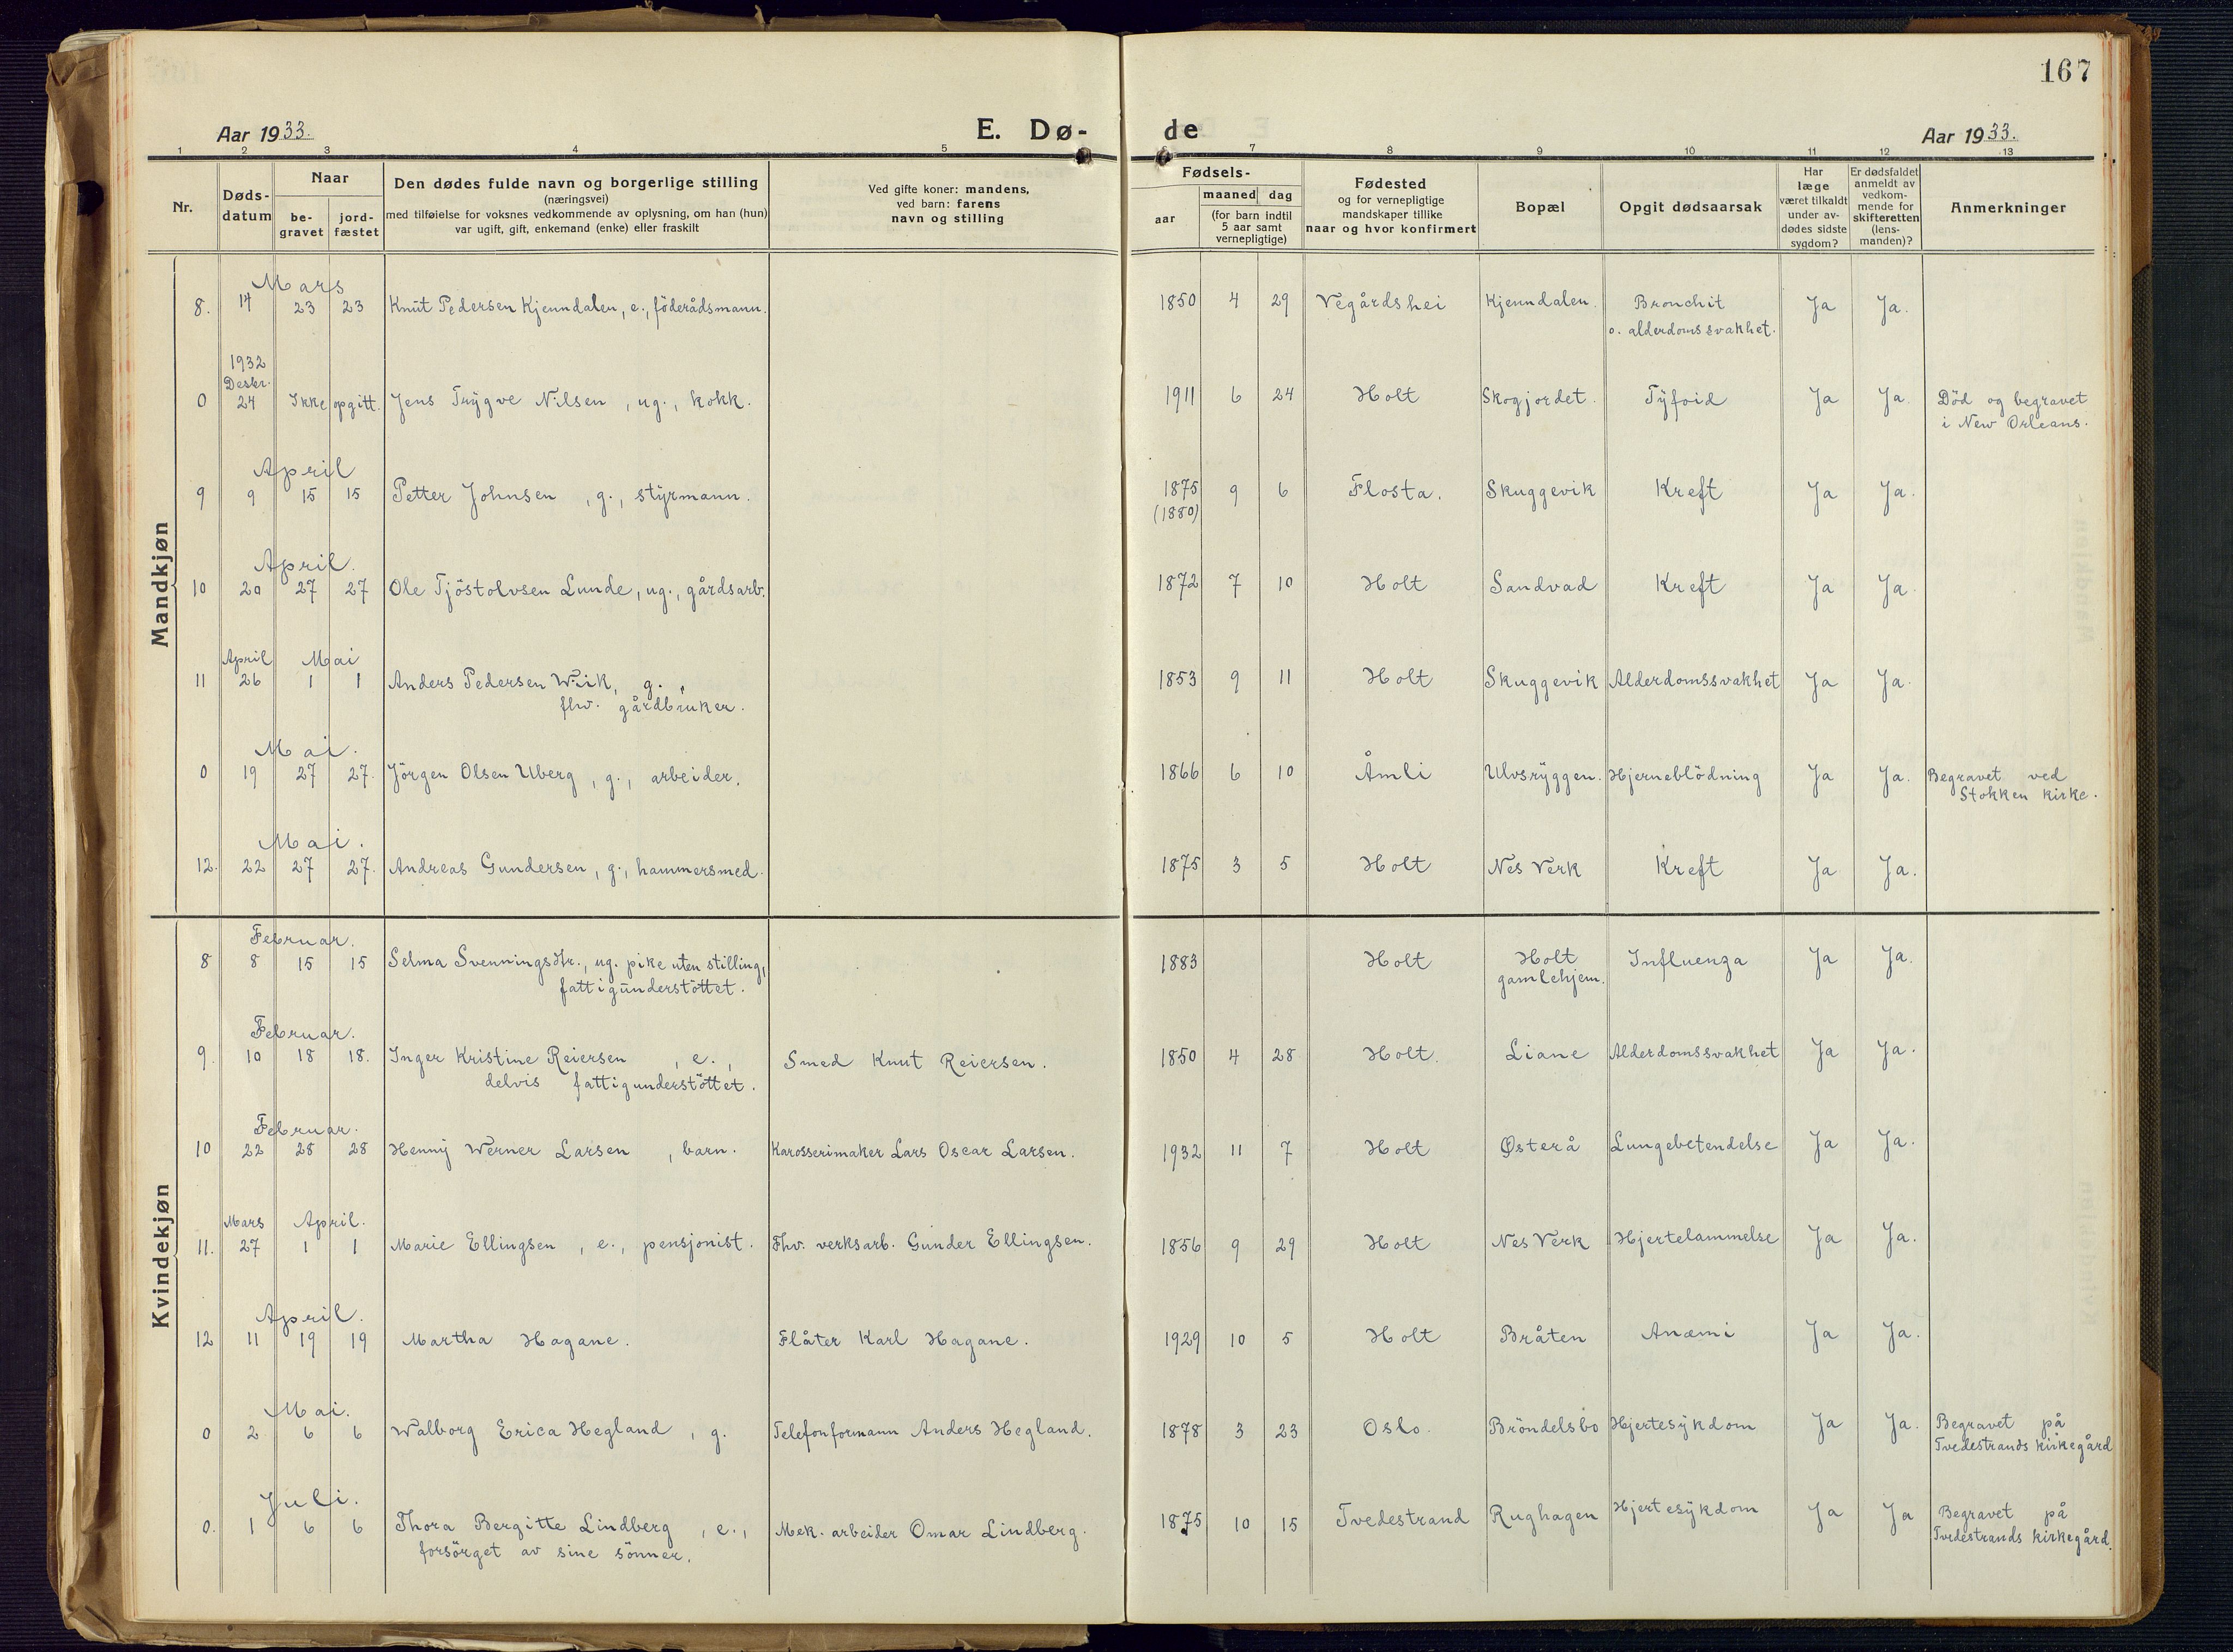 167
Aar 1933.
E. Dø-
de
Aar 1933.
1 2 3 4 5 7 8 9 10 11 12 13
Nr.
Døds-
datum
Naar
be-
gravet
jord-
fæstet
Den dødes fulde navn og borgerlige stilling
(næringsvei)
med tilføielse for voksnes vedkommende av oplysning, om han (hun)
var ugift, gift, enkemand (enke) eller fraskilt
Ved gifte koner: mandens,
ved barn: farens
navn og stilling
Fødsels-
aar
maaned dag
(for barn indtil
5 aar samt
vernepligtige)
Fødested
og for vernepligtige
mandskaper tillike
naar og hvor konfirmert
Bopæl
Opgit dødsaarsak
Har
læge
været tilkaldt
under av-
dødes sidste
sygdom?
Er dødsfaldet
anmeldt av
vedkom-
mende for
skifteretten
(lens-
manden)?
Anmerkninger
Mandkjøn
Mars
8. 14 23 23 Knut Pedersen Kjenndalen, e., föderådsmann. 1850 4 29 Vegårdshei Kjenndalen. Bronchit Ja Ja.
o. alderdomssvakhet.
1932
Desbr.
0 24 Ikke opgitt. Jens Trygve Nilsen, ug., kokk. 1911 6 24 Holt Skogjordet. Tyfoid Ja Ja Död og begravet
i New Orleans.
April
9 9 15 15 Petter Johnsen, g., styrmann. 1875 9 6 Flosta. Skuggevik Kreft Ja Ja.
(1880)
April.
10 20 27 27 Ole Tjöstolvsen Lunde, ug., gårdsarb. 1872 7 10 Holt Sandvad Kreft Ja Ja.
April Mai
11 26 1 1 Anders Pedersen Wiik, g., 1853 9 11 Holt Skuggevik Alderdomssvakhet Ja Ja.
fhv. gårdbruker.
Mai.
0 19 27 27. Jörgen Olsen Uberg, g., arbeider. 1866 6 10 Åmli Ulvsryggen. Hjerneblödning Ja Ja. Begravet ved
Stokken kirke.
Mai.
12. 22 27 27. Andreas Gundersen, g., hammersmed. 1875 3 5 Holt Nes Verk Kreft Ja Ja.
Kvindekjøn
Februar.
8 8 15 15 Selma Svenningsdtr., ug. pike uten stilling, 1883 Holt Holt Influenza Ja Ja.
fattigunderstöttet. gamlehjem.
Februar.
9. 10 18 18. Inger Kristine Reiersen, e., Smed Knut Reiersen. 1850 4 28 Holt. Liane Alderdomssvakhet Ja Ja.
delvis fattigunderstöttet.
Februar.
10 22 28 28 Henny Werner Larsen, barn. Karosserimaker Lars Oscar Larsen. 1932 11 7 Holt Østerå Lungebetendelse Ja Ja.
Mars April.
11. 27 1 1 Marie Ellingsen, e., pensjonist. Fhv. verksarb. Gunder Ellingsen. 1856 9 29 Holt Nes Verk Hjertelammelse Ja Ja.
April.
12 11 19 19 Martha Hagane. Flåter Karl Hagane. 1929 10 5 Holt Bråten Anæmi Ja Ja.
Mai.
0 2 6 6 Walborg Erica Hegland, g. Telefonformann Anders Hegland. 1878 3 23 Oslo. Bröndelsbo Hjertesykdom Ja Ja. Begravet på
Tvedestrands kirkegård
Juli.
0. 1 6 6 Thora Bergitte Lindberg, e., Mek. arbeider Omar Lindberg. 1875 10 15 Tvedestrand Rughagen Hjertesykdom Ja Ja Begravet på
forsörget av sine sönner. Tvedestrands kirkegård.